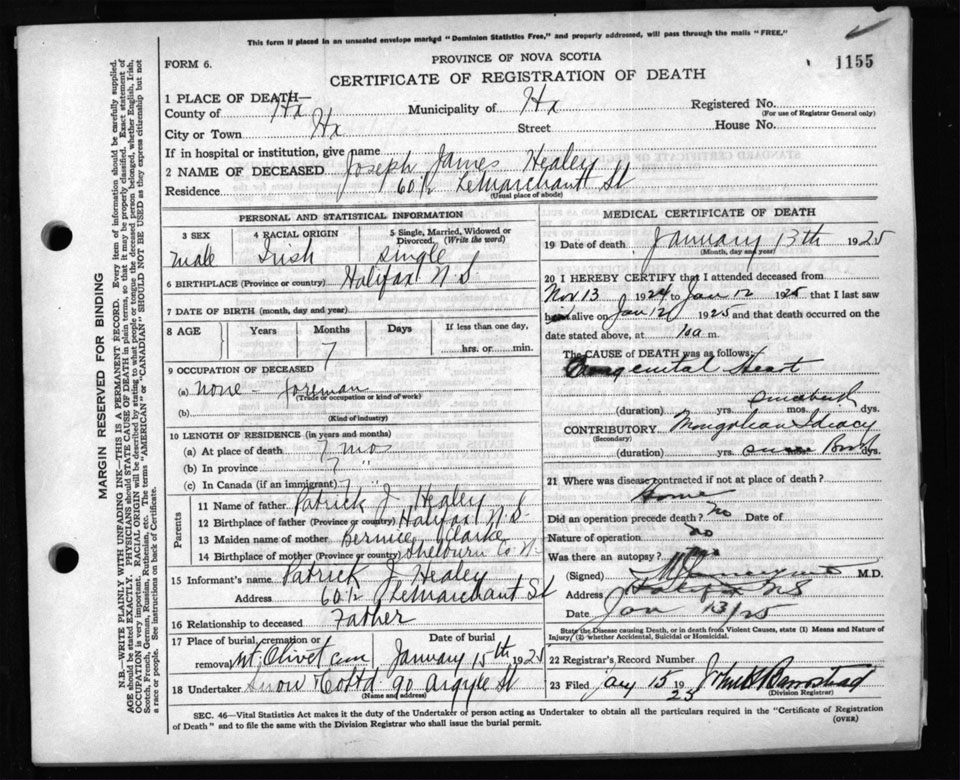 This form if placed in an unsealed envelope markgd "Dominion Statistics Free," and properly addressed, will pass through the mails "FREE."
PROVINCE OF NOVA SCOTIA
FORM 6.
CERTIFICATE OF REGISTRATION OF DEATH
1155
1 PLACE OF DEATH—
County of Hx Municipality of Hx Registered No.
(For use of Registrar General only)
City or Town Hx Street House No.
If in hospital or institution, give name
2 NAME OF DECEASED Joseph James Healey
Residence 60½ LeMarchant St
(Usual place of abode)
PERSONAL AND STATISTICAL INFORMATION
3 SEX 4 RACIAL ORIGIN 5 Single, Married, Widowed or Divorced. (Write the word)
male Irish single
6 BIRTHPLACE (Province or country) Halifax N.S.
7 DATE OF BIRTH (month, day and year)
8 AGE Years Months Days If less than one day,
7 hrs. or min.
9 OCCUPATION OF DECEASED
(a) none - foreman
(Trade or occupation or kind of work)
(b)
(Kind of industry)
10 LENGTH OF RESIDENCE (in years and months)
(a) At place of death 7 mo
(b) In province 7 "
(c) In Canada (if an immigrant) 7 "
Parents
11 Name of father Patrick J Healey
12 Birthplace of father (Province or country) Halifax N.S.
13 Maiden name of mother Bernice Clarke
14 Birthplace of mother (Province or country) Shelburn Co N.
15 Informant's name Patrick J Healey
Address 60½ LeMarchant St
16 Relationship to deceased Father
17 Place of burial, cremation or removal Mt. Olivet cem Date of burial January 15th 1925
18 Undertaker Snow & Co Ltd 90 Argyle St
(Name and address)
MEDICAL CERTIFICATE OF DEATH
19 Date of death January 13th 1925
(Month, day and year)
20 I HEREBY CERTIFY that I attended deceased from
Nov 13 1924 to Jan 12 1925 that I last saw
him alive on Jan 12 1925 and that death occurred on the
date stated above, at 10 a m.
The CAUSE of DEATH was as follows:
Congenital Heart
(duration) yrs. mos. dys.
CONTRIBUTORY Mongolian Idiacy
(Secondary)
(duration) yrs. dys.
21 Where was disease contracted if not at place of death?
Home
Did an operation precede death? no Date of
Nature of operation no
Was there an autopsy? no
(Signed) M.D.
Address Halifax NS
Date Jan 13/25
State the Disease causing Death, or in death from Violent Causes, state (1) Means and Nature of Injury/ (2) whether Accidental, Suicidal or Homicidal.
22 Registrar's Record Number
23 Filed Jany 15 1925 John B Barnstead
(Division Registrar)
SEC. 46—Vital Statistics Act makes it the duty of the Undertaker or person acting as Undertaker to obtain all the particulars required in the "Certificate of Registration of Death" and to file the same with the Division Registrar who shall issue the burial permit.
(OVER)
MARGIN RESERVED FOR BINDING
N.B.—WRITE PLAINLY WITH UNFADING INK—THIS IS A PERMANENT RECORD. Every item of information should be carefully supplied.
AGE should be stated EXACTLY. PHYSICIANS should STATE CAUSE OF DEATH in plain terms, so that it may be properly classified. Exact statement of
OCCUPATION is very important. RACIAL ORIGIN will be described by stating to what people or tongue the deceased person belonged, whether English, Irish,
Scotch, French, German, Russian, Ruthenian, etc. The terms "AMERICAN" or "CANADIAN" SHOULD NOT BE USED as they express citizenship but not
a race or people. See instructions on back of Certificate.